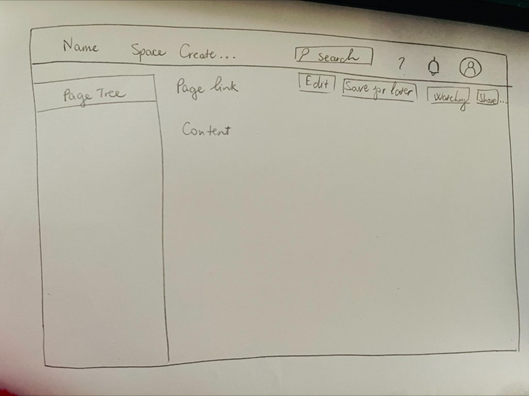 Name Space Create... search ?
Page Tree Page link Edit Save for later Watching Share...
Content